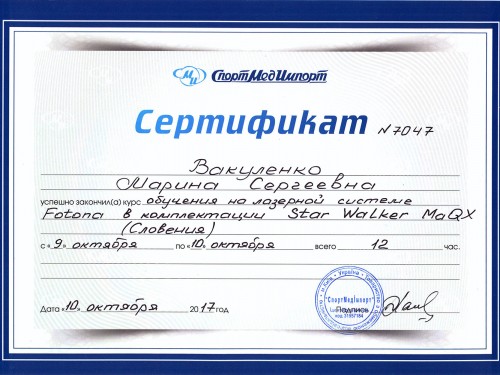 СпортМедИмпорт
Сертификат N7047
Вакуленко
Марина Сергеевна
успешно закончил(а) курс обучения на лазерной системе
Fotona в комплектации Star Walker MaQX
(Словения)
с «9» октября по «10» октября всего 12 час.
"СпортМедІмпорт"
Дата «10» октября 2017 год Подпись